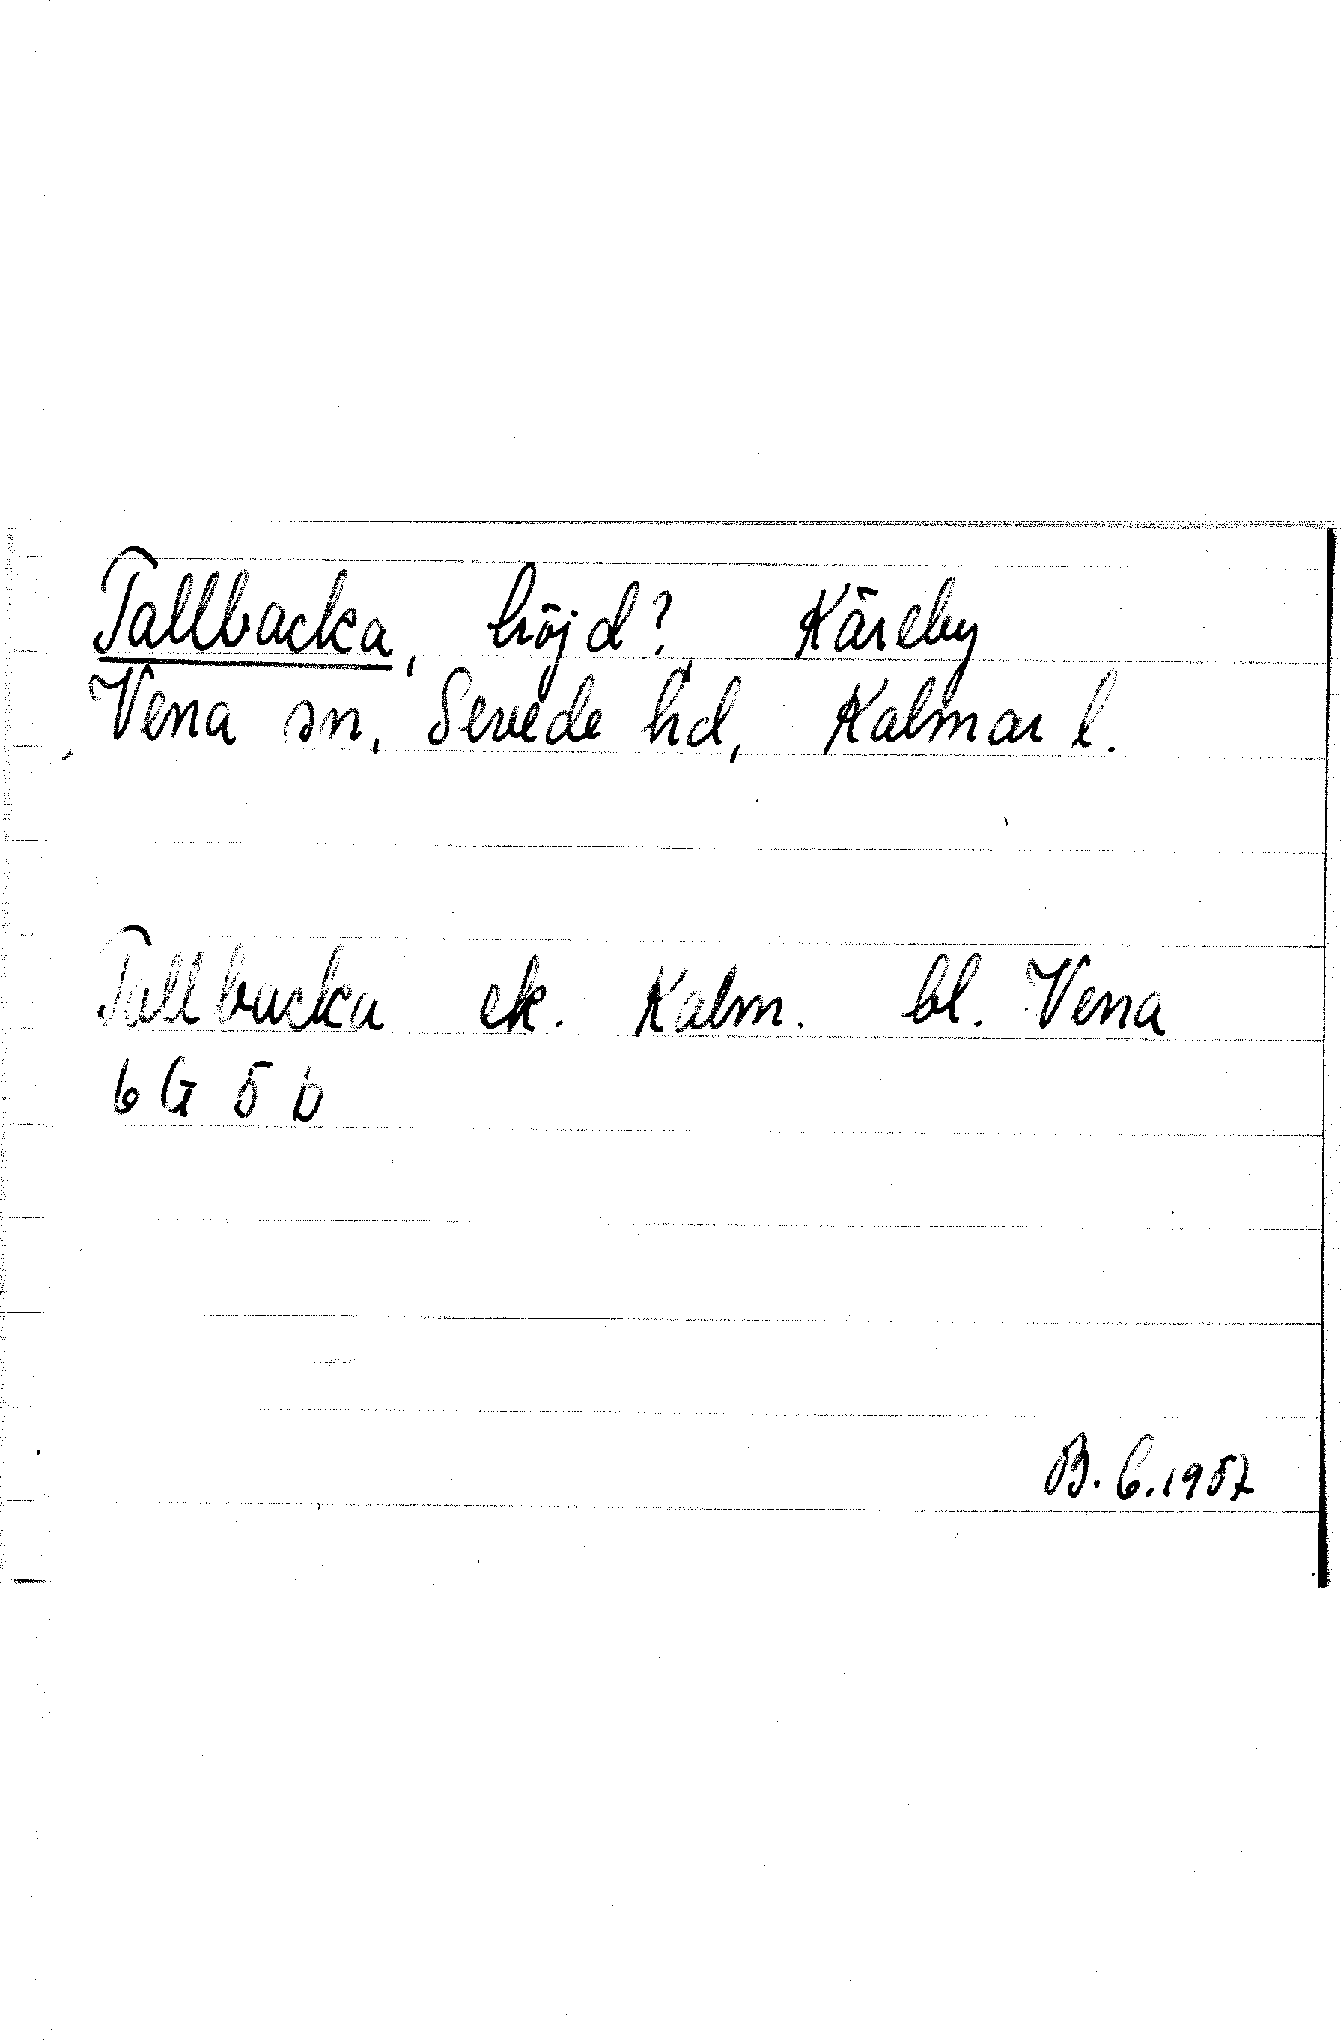 Tallbacka, höjd? Käreby
Vena sn, Sevede hd, Kalmar l.
Tallbacka ek. Kalm. bl. Vena
6 G 5 b
B. 6.1957